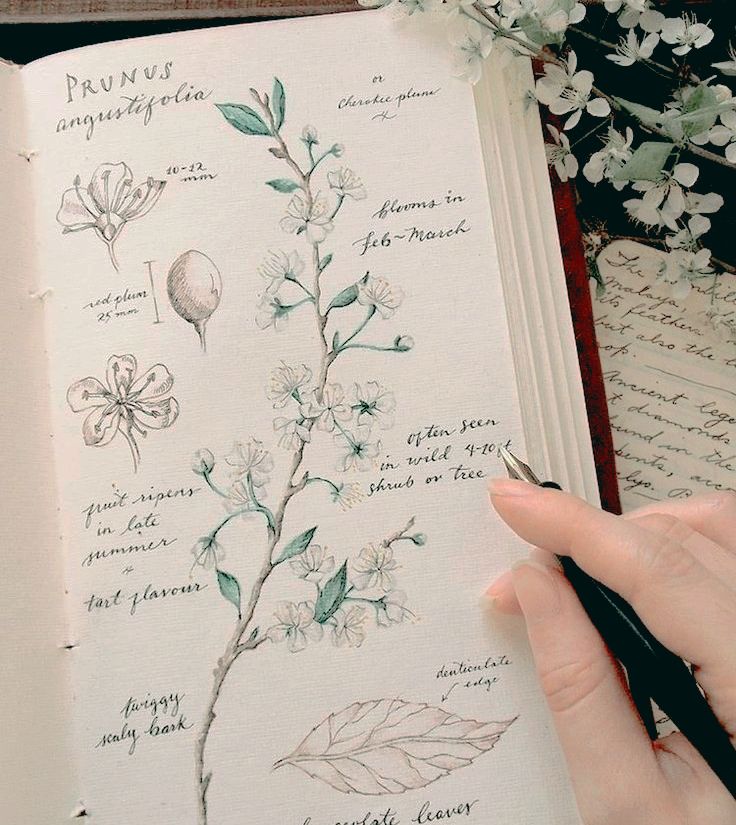 PRUNUS
angustifolia
or
Cherokee plum
10-12
mm
blooms in
feb~March
red plum
25 mm
often seen
in wild 4-20ft
shrub or tree
fruit ripens
in late
summer
+
tart flavour
twiggy
scaly bark
denticulate
edge
leaves
The
its feathers
but also the
Ancient lege
t diamonds
und in the
ents, acc